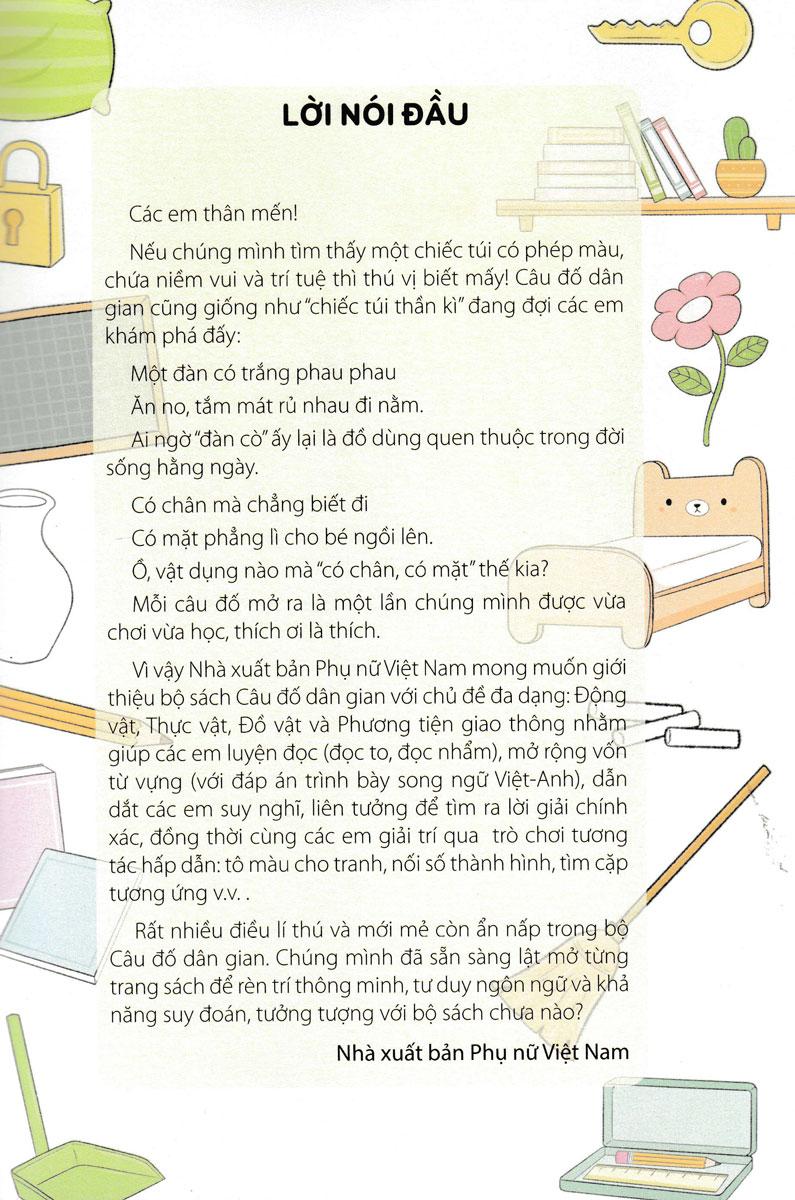 LỜI NÓI ĐẦU
Các em thân mến!
Nếu chúng mình tìm thấy một chiếc túi có phép màu,
chứa niềm vui và trí tuệ thì thú vị biết mấy! Câu đố dân
gian cũng giống như “chiếc túi thần kì” đang đợi các em
khám phá đấy:
Một đàn có trắng phau phau
Ăn no, tắm mát rủ nhau đi nằm.
Ai ngờ “đàn cò” ấy lại là đồ dùng quen thuộc trong đời
sống hằng ngày.
Có chân mà chẳng biết đi
Có mặt phẳng lì cho bé ngồi lên.
Ồ, vật dụng nào mà “có chân, có mặt” thế kia?
Mỗi câu đố mở ra là một lần chúng mình được vừa
chơi vừa học, thích ơi là thích.
Vì vậy Nhà xuất bản Phụ nữ Việt Nam mong muốn giới
thiệu bộ sách Câu đố dân gian với chủ đề đa dạng: Động
vật, Thực vật, Đồ vật và Phương tiện giao thông nhằm
giúp các em luyện đọc (đọc to, đọc nhẩm), mở rộng vốn
từ vựng (với đáp án trình bày song ngữ Việt-Anh), dẫn
dắt các em suy nghĩ, liên tưởng để tìm ra lời giải chính
xác, đồng thời cùng các em giải trí qua trò chơi tương
tác hấp dẫn: tô màu cho tranh, nối số thành hình, tìm cặp
tương ứng v.v. .
Rất nhiều điều lí thú và mới mẻ còn ẩn nấp trong bộ
Câu đố dân gian. Chúng mình đã sẵn sàng lật mở từng
trang sách để rèn trí thông minh, tư duy ngôn ngữ và khả
năng suy đoán, tưởng tượng với bộ sách chưa nào?
Nhà xuất bản Phụ nữ Việt Nam